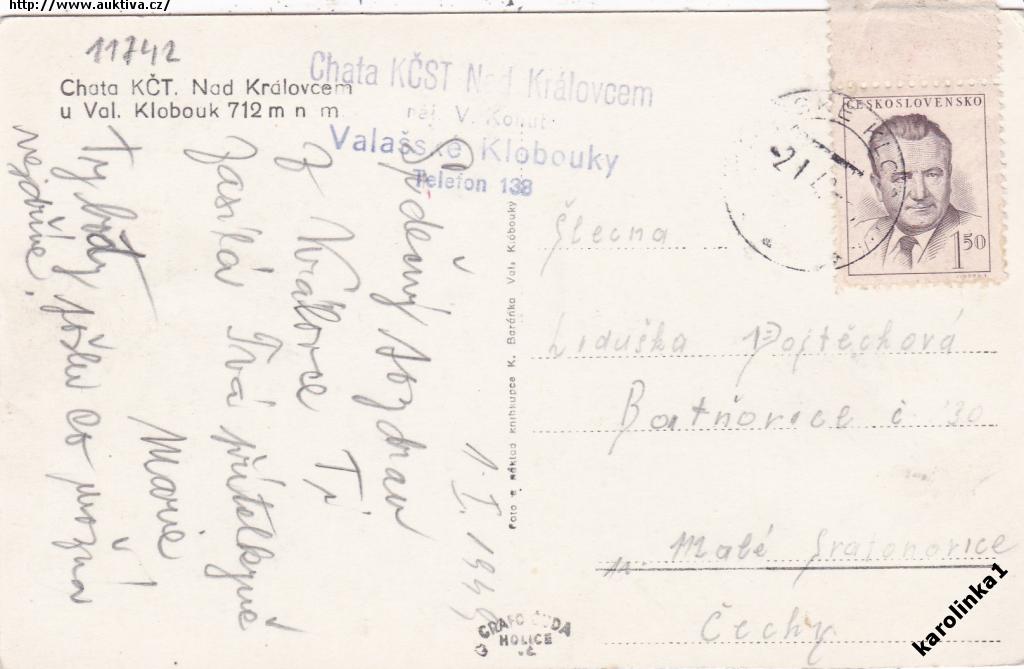 http://www.auktiva.cz/
11742
Chata KČT. Nad Královcem
u Val. Klobouk 712 m n m
Chata KČST Nad Královcem
náj. V. Kohut
Valašské Klobouky
Telefon 138
1. I. 1949
Srdečný pozdrav
z Královce Ti
zasílá Tvá přítelkyně
Marie
Ty boty pošlu co možná
nejdříve.
Foto a náklad knihkupce K. Baráňka Val. Klobouky
ČESKOSLOVENSKO
1 50
Slečna
Liduška Vojtěchová
Batňovice č 30
Malé Svatoňovice
Čechy
GRAFO ČUDA
HOLICE
v Č.
karolinka1